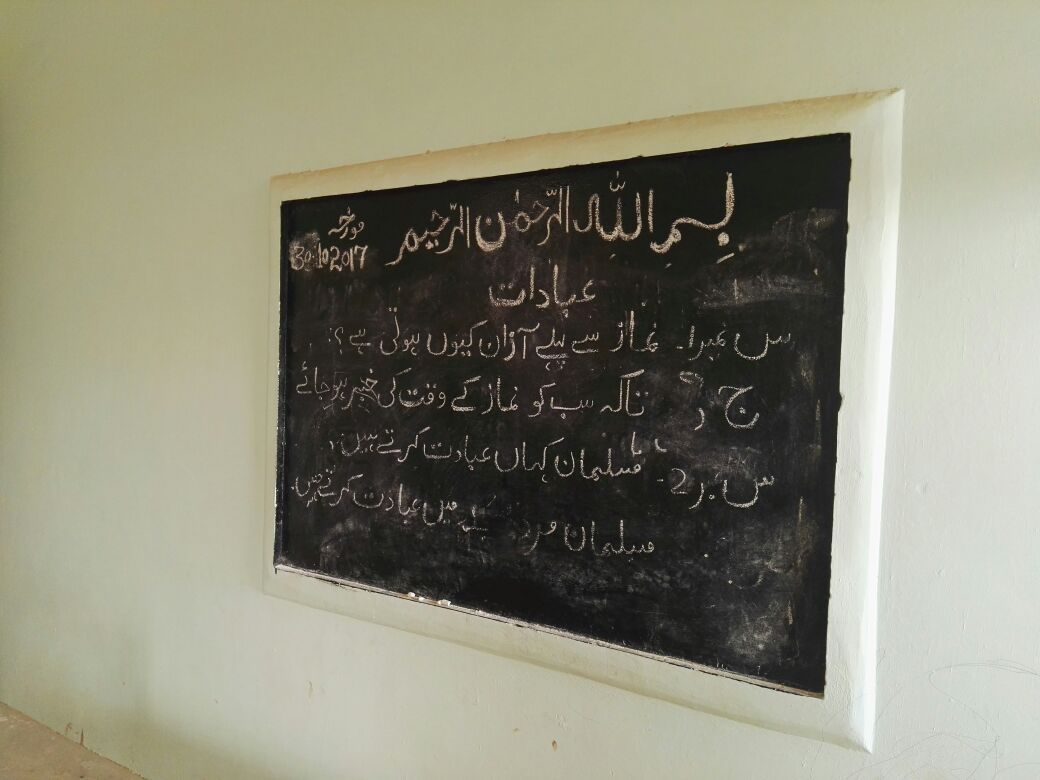 بِسمِ اللّٰہِ الرّحمٰن الرّحیم
مورخہ
30.10.2017
عبادات
س نمبر1۔ نماز سے پہلے آزان کیوں ہوتی ہے؟
ج تاکہ سب کو نماز کے وقت کی خبر ہو جائے
س نمبر 2۔ مسلمان کہاں عبادت کرتے ہیں۔
مسلمان میں عبادت کرتے ہیں۔